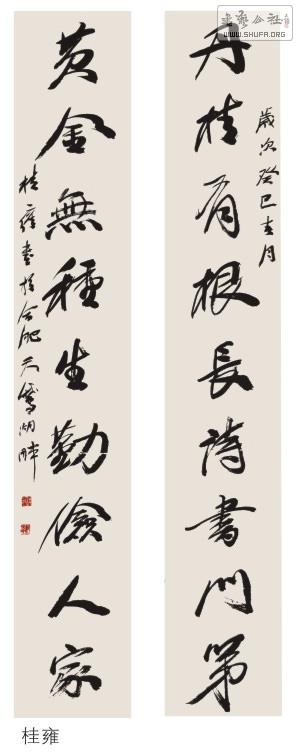 歲次癸巳春月
丹桂有根長詩書門第
黄金無種生勤儉人家
桂雍書於合肥天鵝湖畔
桂雍
WWW.SHUFA.ORG